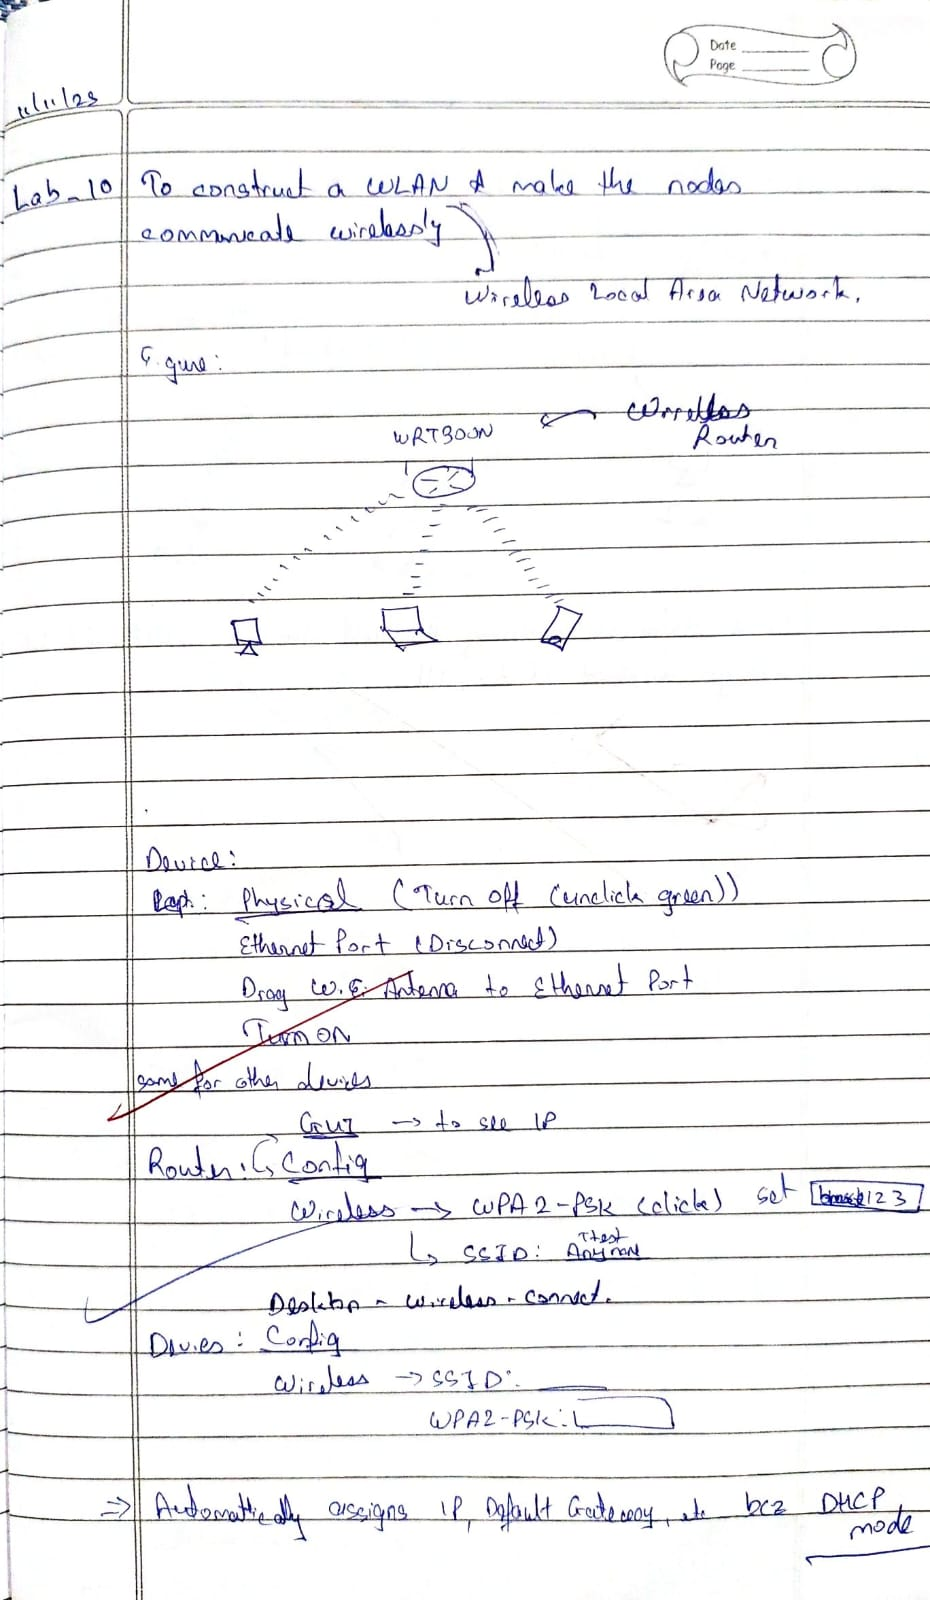 Date
Page
11/11/23
Lab-10 To construct a WLAN & make the nodes
communicate wirelessly
Wireless Local Area Network.
Figure:
Wireless
WRT300N
Router
Device:
Physical (Turn off (unclick green))
Ethernet Port (Disconnect)
Drag Antenna to Ethernet Port
Turn on
same for other devices
GUI → to see IP
Router: ↳ Config
Wireless → WPA2-PSK (click) set 123
Ttest
↳ SSID: Anyname
Desktop - wireless - connect.
Devies: Config
Wireless → SSID:
WPA2-PSK:
⇒ Automattically assigns IP, Default Gateway, etc bcz DHCP
mode